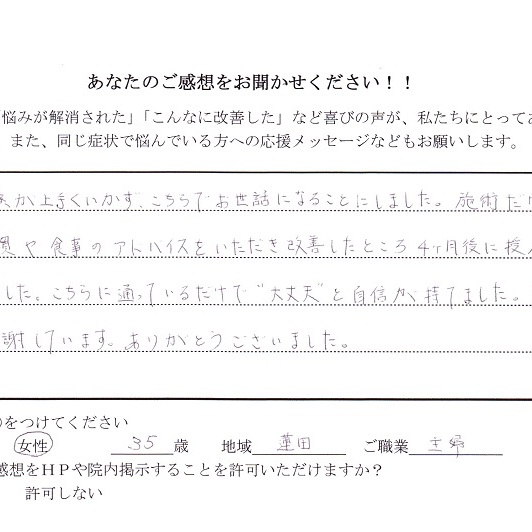 あなたのご感想をお聞かせください！！
悩みが解消された」「こんなに改善した」など喜びの声が、私たちにとってあ
また、同じ症状で悩んでいる方への応援メッセージなどもお願いします。
が上手くいかず、こちらでお世話になることにしました。施術だけ
慣や食事のアドバイスをいただき改善したところ4ヶ月後に授
した。こちらに通っているだけで"大丈夫"と自信が持てました。
謝しています。ありがとうございました。
をつけてください
女性 35 歳 地域 蓮田 ご職業 主婦
感想をＨＰや院内掲示することを許可いただけますか？
許可しない